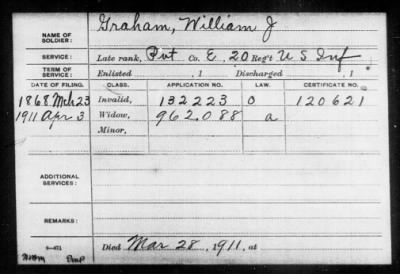 Graham, William J
NAME OF SOLDIER:
SERVICE: Late rank, Pvt Co. E, 20 Reg't U S Inf
TERM OF SERVICE: Enlisted , 1 Discharged , 1
DATE OF FILING. CLASS. APPLICATION NO. LAW. CERTIFICATE NO.
1868 Mch 23 Invalid, 132223 O 120621
1911 Apr 3 Widow, 962.088 a
Minor,
ADDITIONAL SERVICES:
REMARKS:
Died Mar 28, 1911, at